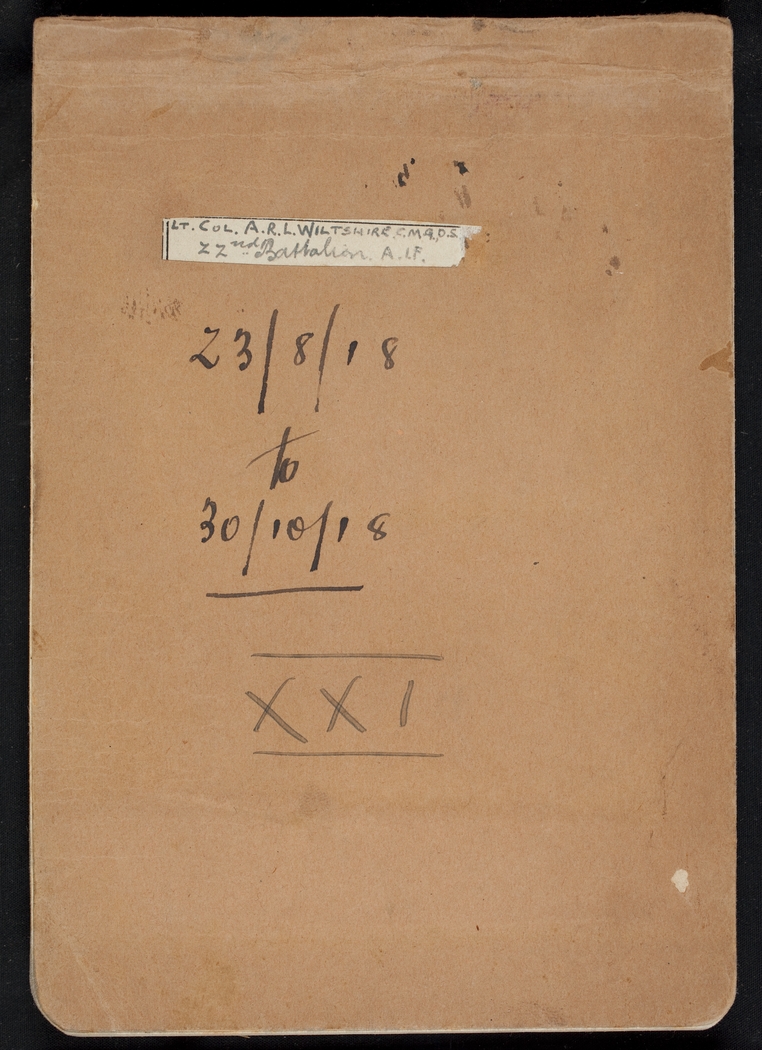 LT. COL. A.R.L. WILTSHIRE, C.M.G, D.S.
22nd Battalion. A.I.F.
23/8/18
to
30/10/18
XXI